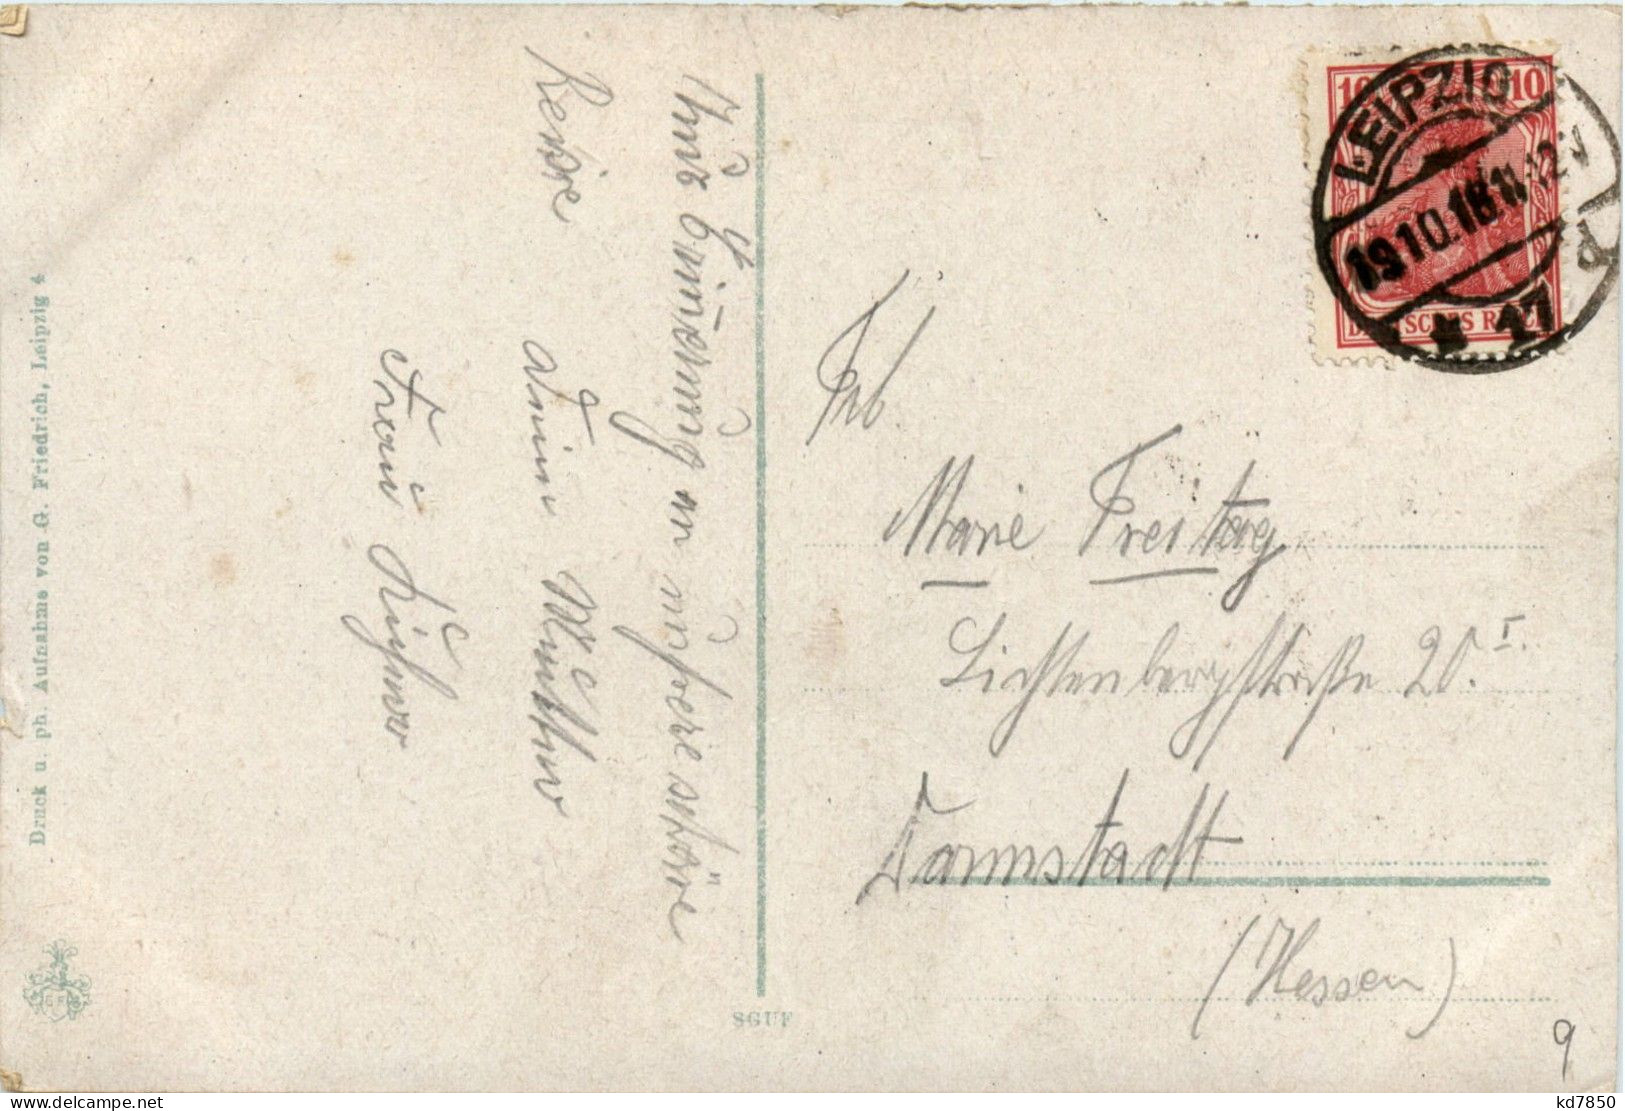 Zur Erinnerung an unsere schöne
Reise
deine Mutter
Frau
Frl
Marie Freitag
Lichtenbergstraße 20 I.
Darmstadt
(Hessen)
9
LEIPZIG
19.10.18.11-12 V
* 17
10 10
DEUTSCHES REICH
Druck u. ph. Aufnahme von G. Friedrich, Leipzig 4
SGUF
kd7850